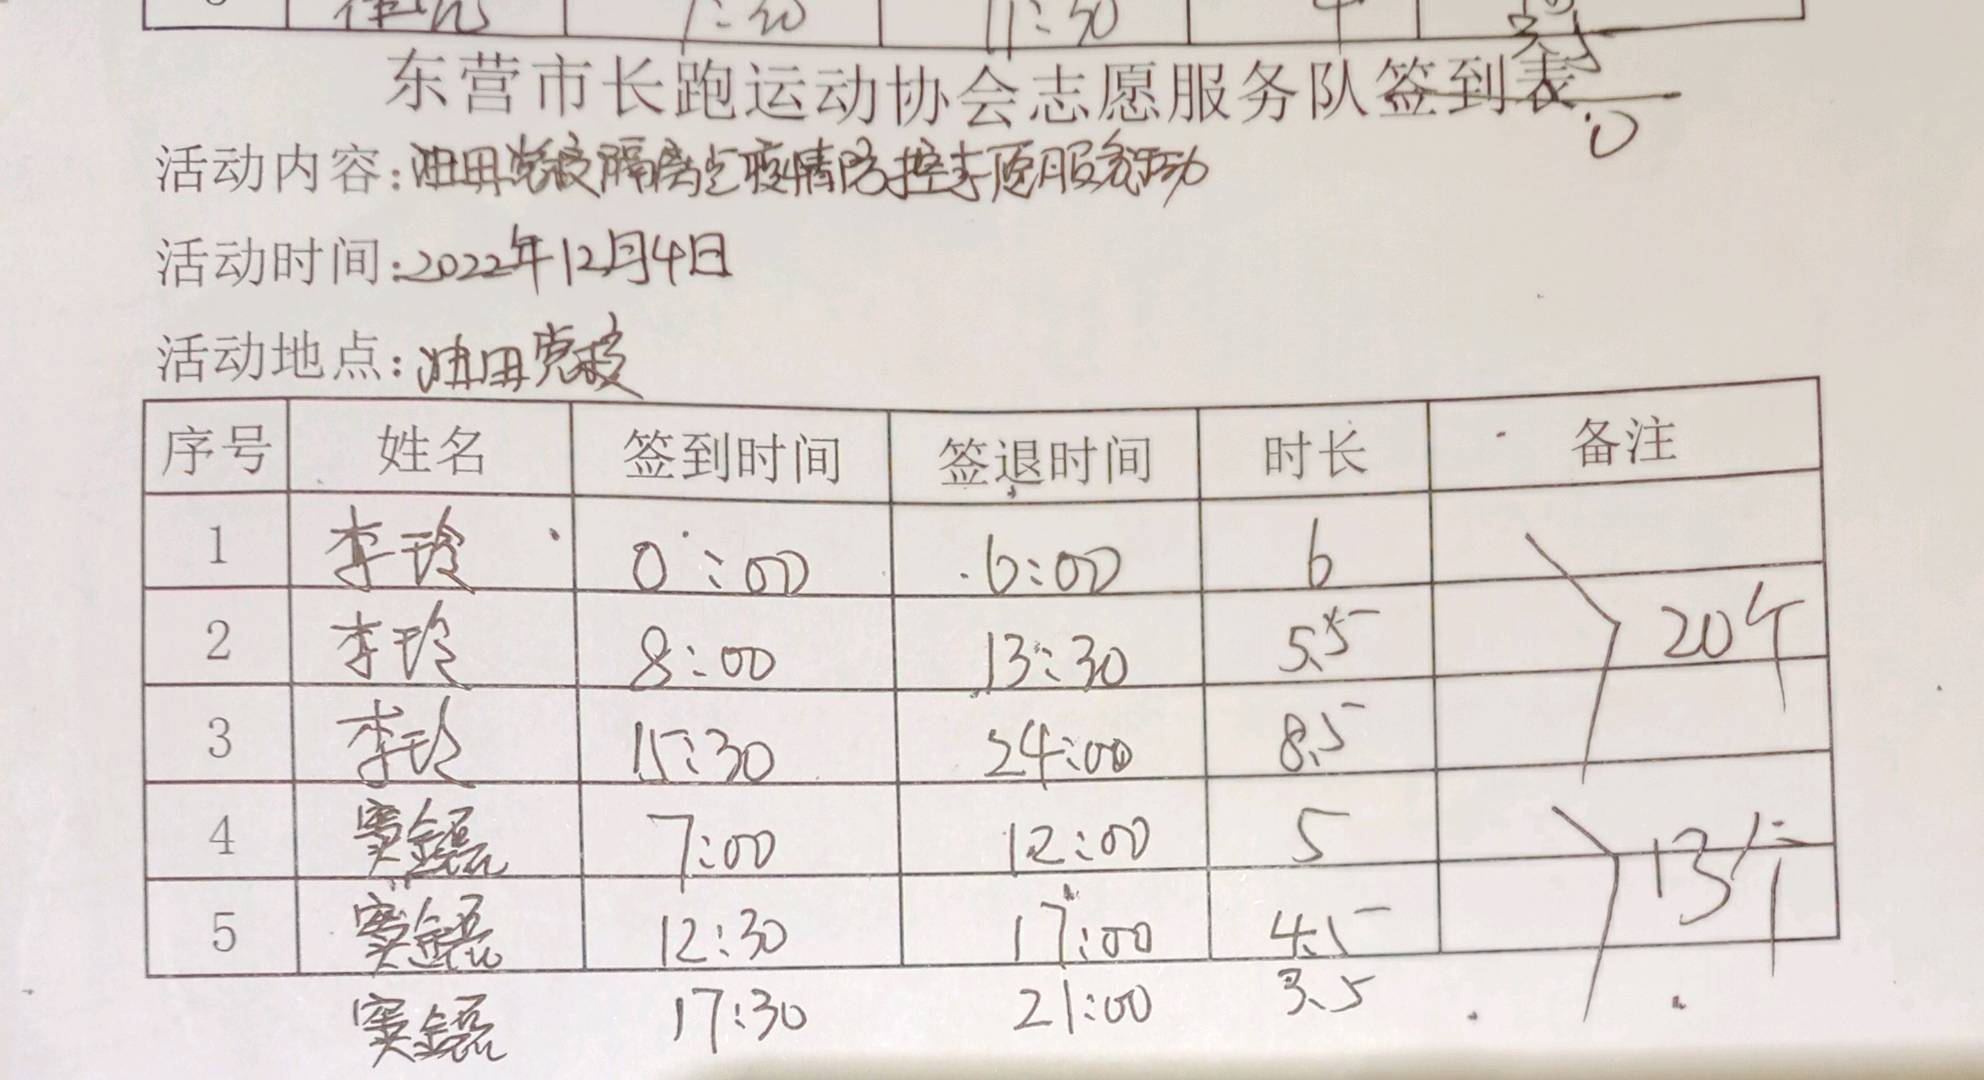 7:30 11:30 4
东营市长跑运动协会志愿服务队签到表
活动内容:油田党校隔离点疫情防控志愿服务活动
活动时间:2022年12月4日
活动地点:油田党校
序号 姓名 签到时间 签退时间 时长 备注
1 李玲 0:00 6:00 6
2 李玲 8:00 13:30 5.5 20个
3 李玲 15:30 24:00 8.5
4 窦金磊 7:00 12:00 5 13个
5 窦金磊 12:30 17:00 4.5
窦金磊 17:30 21:00 3.5